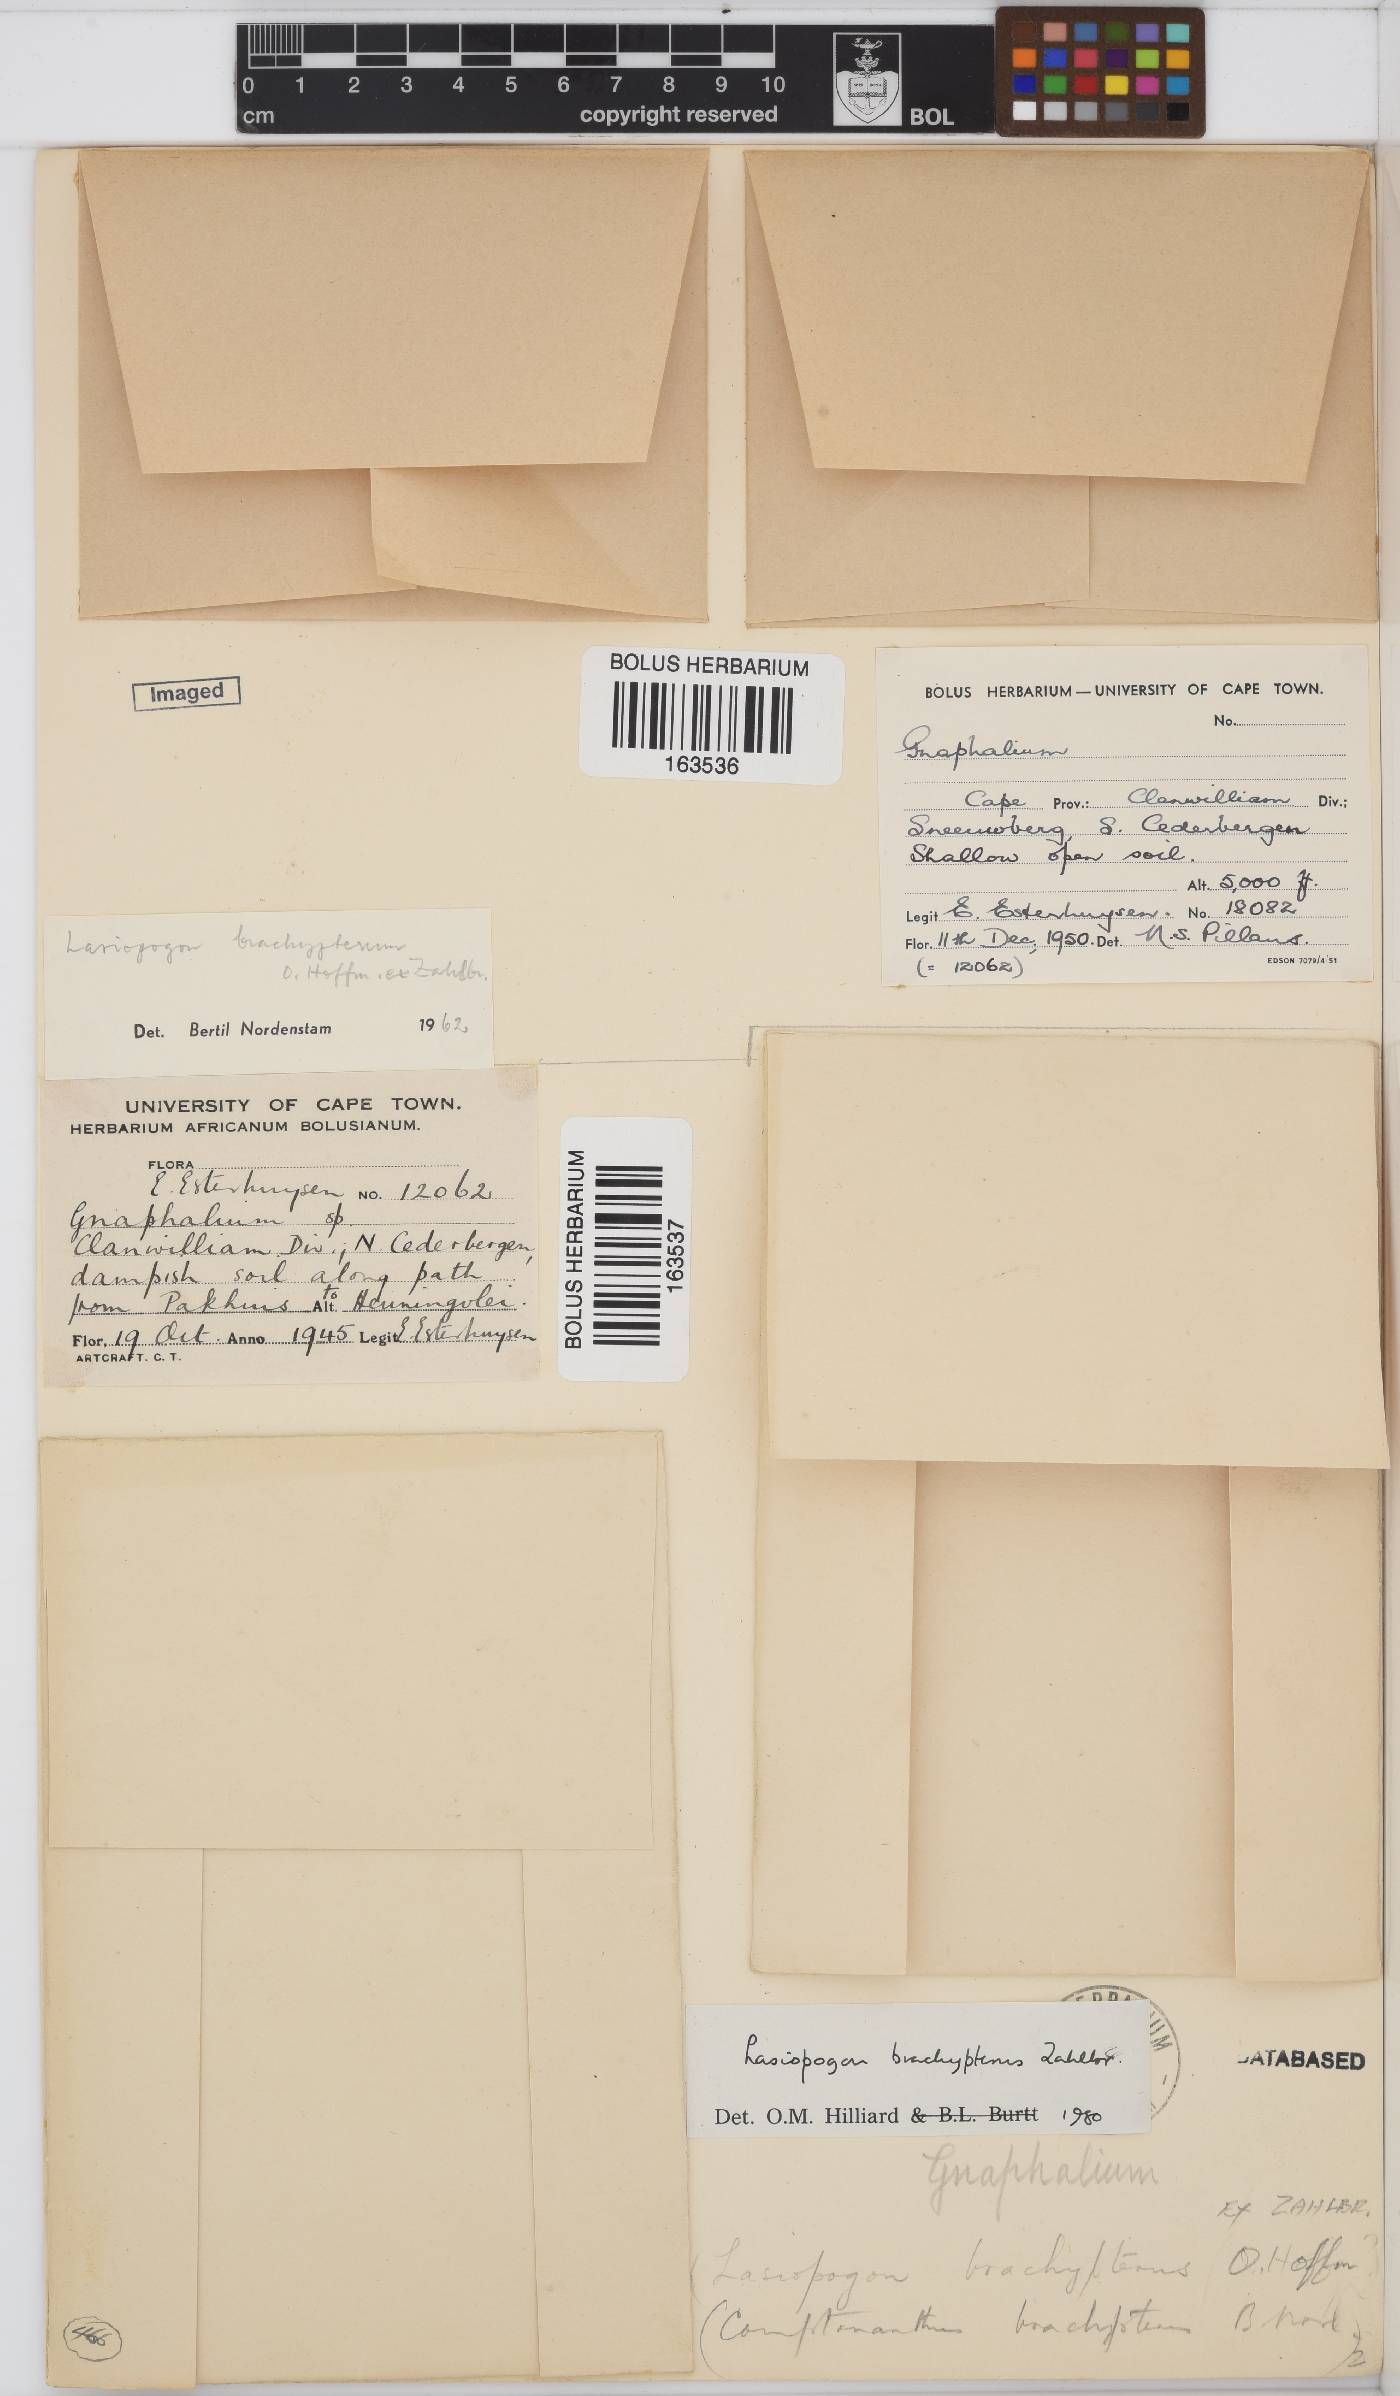 0 1 2 3 4 5 6 7 8 9 10
cm copyright reserved BOL
Imaged
BOLUS HERBARIUM
163536
BOLUS HERBARIUM — UNIVERSITY OF CAPE TOWN.
No.
Gnaphalium
Cape Prov.: Clanwilliam Div.;
Sneeuwberg, S. Cederbergen
Shallow open soil.
Alt. 5,000 ft.
Legit E. Esterhuysen. No. 18082
Flor. 11th Dec, 1950. Det. N.S. Pillans.
(= 12062)
EDSON 7079/4'51
Lasiopogon brachypterum
O. Hoffm. ex Zahlbr.
Det. Bertil Nordenstam 1962
UNIVERSITY OF CAPE TOWN.
HERBARIUM AFRICANUM BOLUSIANUM.
FLORA
E. Esterhuysen NO. 12062
Gnaphalium sp.
Clanwilliam Div.; N. Cederbergen,
dampish soil along path
from Pakhuis to Alt. Heuningvlei.
Flor. 19 Oct. Anno 1945 Legit E Esterhuysen
ARTCRAFT. C. T.
BOLUS HERBARIUM
163537
Lasiopogon brachypterus Zahlbr.
Det. O.M. Hilliard & B.L. Burtt 1980
DATABASED
Gnaphalium
EX ZAHLBR.
(Lasiopogon brachypterus O. Hoffm
(Comptonanthus brachypterus B. Nord
466